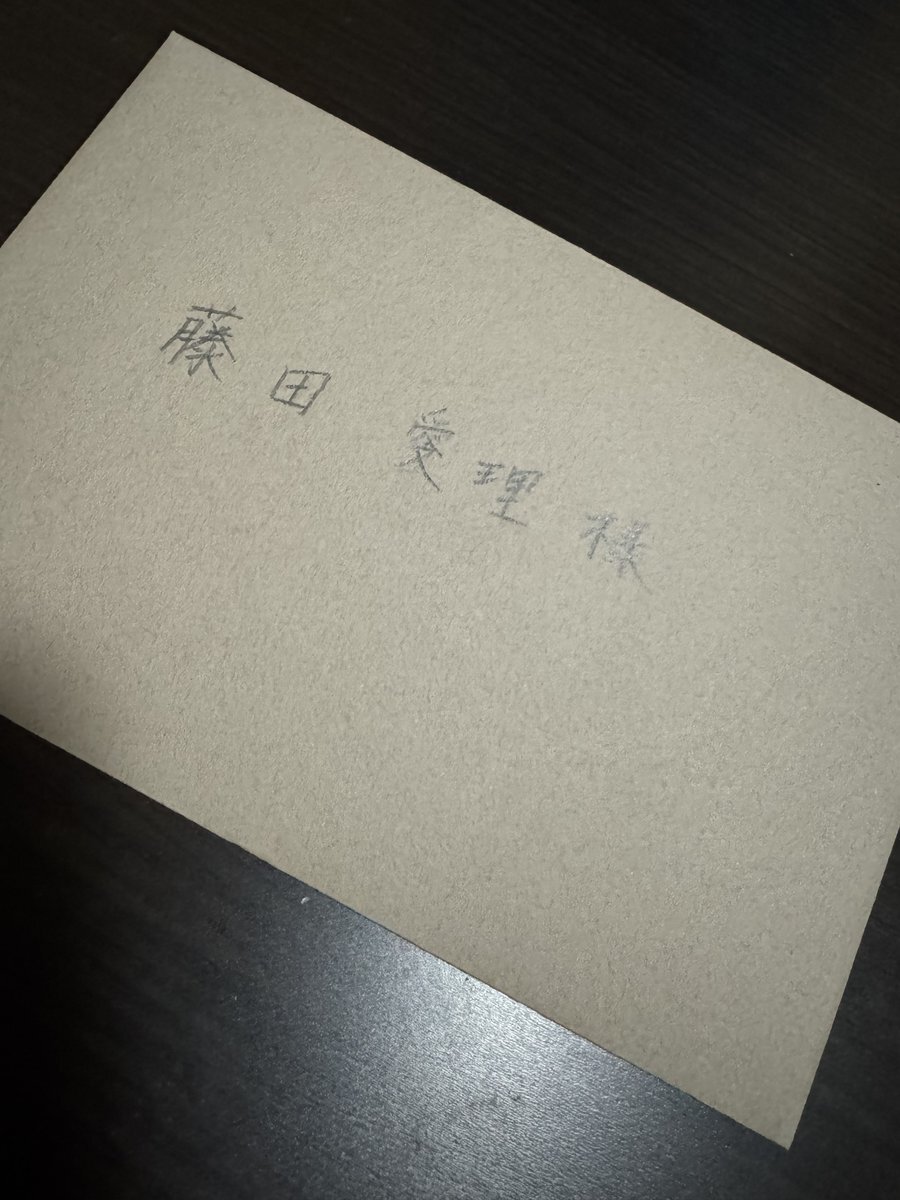 藤田 愛理 様